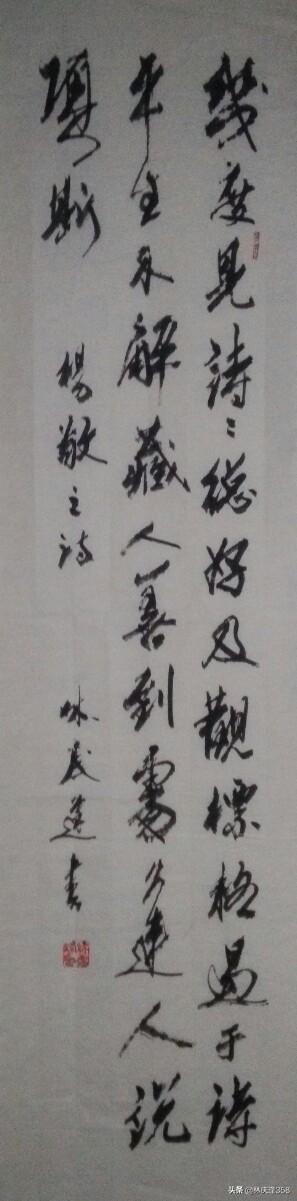 幾度見詩〻總好及觀標格過于詩
平生不解藏人善到處逢人說
項斯 楊敬之詩 林書
头条 @林358